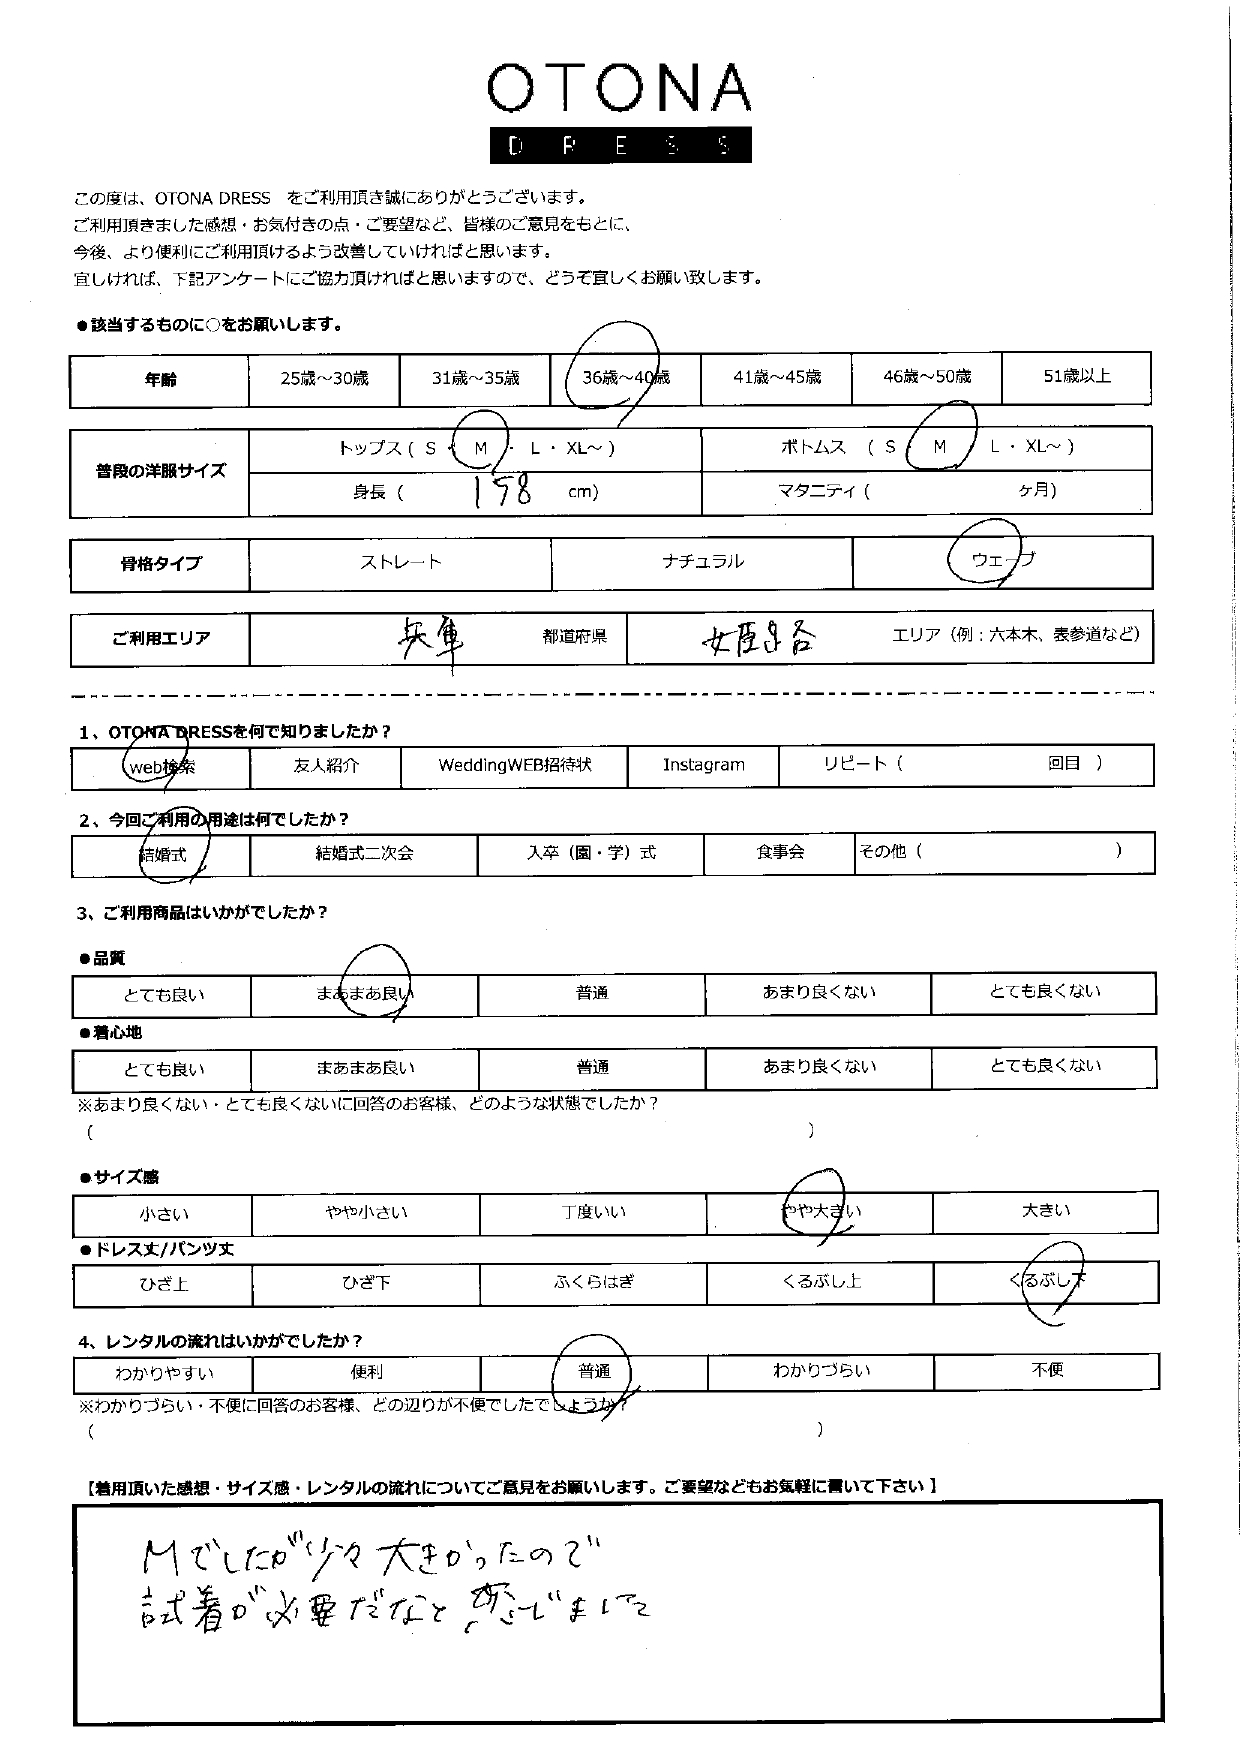 OTONA
DRESS
この度は、OTONA DRESS をご利用頂き誠にありがとうございます。
ご利用頂きました感想・お気付きの点・ご要望など、皆様のご意見をもとに、
今後、より便利にご利用頂けるよう改善していければと思います。
宜しければ、下記アンケートにご協力頂ければと思いますので、どうぞ宜しくお願い致します。
●該当するものに○をお願いします。
年齢 25歳～30歳 31歳～35歳 36歳～40歳 41歳～45歳 46歳～50歳 51歳以上
普段の洋服サイズ トップス ( S ・ M ・ L ・ XL～ ) ボトムス ( S M L ・ XL～ )
身長 ( 158 cm) マタニティ ( ケ月)
骨格タイプ ストレート ナチュラル ウェーブ
ご利用エリア 兵庫 都道府県 エリア（例：六本木、表参道など）
1、OTONA DRESSを何で知りましたか？
web検索 友人紹介 WeddingWEB招待状 Instagram リピート ( 回目 )
2、今回ご利用の用途は何でしたか？
結婚式 結婚式二次会 入卒（園・学）式 食事会 その他 ( )
3、ご利用商品はいかがでしたか？
●品質
とても良い まあまあ良い 普通 あまり良くない とても良くない
●着心地
とても良い まあまあ良い 普通 あまり良くない とても良くない
※あまり良くない・とても良くないに回答のお客様、どのような状態でしたか？
( )
●サイズ感
小さい やや小さい 丁度いい やや大きい 大きい
●ドレス丈/パンツ丈
ひざ上 ひざ下 ふくらはぎ くるぶし上 くるぶし下
4、レンタルの流れはいかがでしたか？
わかりやすい 便利 普通 わかりづらい 不便
※わかりづらい・不便に回答のお客様、どの辺りが不便でしたでしょうか？
( )
【着用頂いた感想・サイズ感・レンタルの流れについてご意見をお願いします。ご要望などもお気軽に書いて下さい】
Mでしたが少々大きかったので
試着が必要だなと